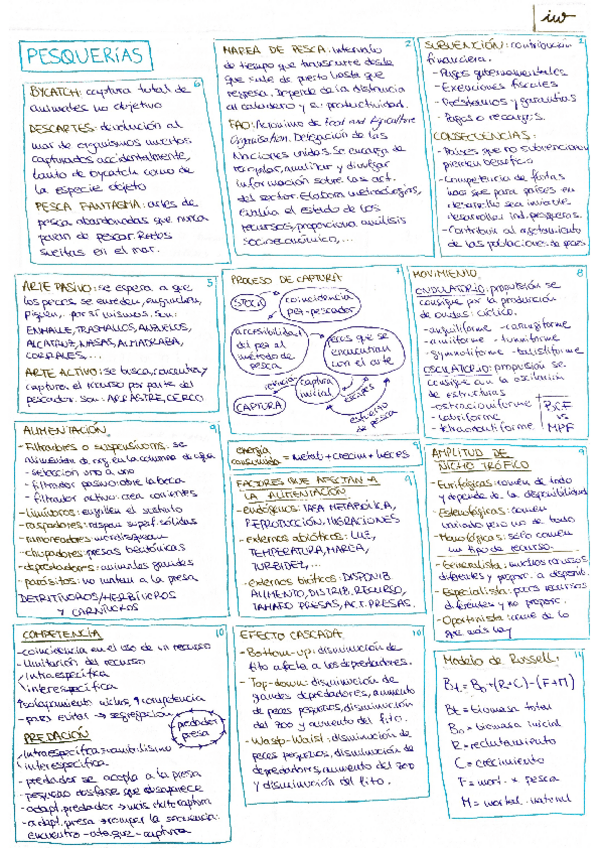 iw
PESQUERÍAS
6
BYCATCH: captura total de
animales no objetivo
DESCARTES: devolución al
mar de organismos muertos
capturados accidentalmente,
tanto de bycatch como de
la especie objeto
PESCA FANTASMA: artes de
pesca abandonadas que nunca
paran de pescar. Redes
sueltas en el mar.
2
MAREA DE PESCA: intervalo
de tiempo que transcurre desde
que sale de puerto hasta que
regresa. Depende de la distancia
al caladero y a productividad.
FAO: Acrónimo de Food and Agriculture
Organisation. Delegación de las
Naciones Unidas. Se encarga de
recopilar, analizar y divulgar
información sobre las act.
del sector. Elabora metodologías,
evalúa el estado de los
recursos, proporciona análisis
socioeconómico,...
2
SUBVENCIÓN: contribución
financiera.
- Pagos gubernamentales
- Exenciones fiscales
- Préstamos y garantías
- Pagos o recargos.
CONSECUENCIAS:
- Países que no subvencionan
pierden beneficio
- Competencia de flotas
hace que para países en
desarrollo sea inviable
desarrollar ind. pesqueras.
- Contribuir al agotamiento
de las poblaciones de peces
5
ARTE PASIVO: se espera a que
los peces se enreden, enganchen,
piquen,... por sí mismos. Son:
ENMALLE, TRASMALLOS, ANZUELOS,
ALCATRUZ, NASAS, ALMADRABA,
CORRALES,...
ARTE ACTIVO: se busca, concentra y
captura el recurso por parte del
pescador. Son: ARRASTRE, CERCO
7
PROCESO DE CAPTURA
STOCK
coincidencia
pez-pescador
accesibilidad
del pez al
método de
pesca
peces que se
encuentran
con el arte
retención
captura
inicial
escapes
CAPTURA
esfuerzo
de pesca
8
MOVIMIENTO
ONDULATORIO: propulsión se
consigue por la producción
de ondas: cíclico.
- anguiliforme - carangiforme
- amiiforme - tunniforme
- gymnotiforme - balistiforme
OSCILATORIO: propulsión se
consigue con la oscilación
de estructuras
- ostraciiforme
- labriforme
- tetraodontiforme
BCF
vs
MPF
9
ALIMENTACIÓN
- Filtradores o suspensívoros: se
alimentan de org en la columna de agua
- selección uno a uno
- filtrador pasivo: abre la boca
- filtrador activo: crea corrientes
- limnívoros: engullen el sustrato
- raspadores: raspan superf. sólidas
- ramoneadores: mordisquean
- chupadores: presas bentónicas
- depredadores: animales grandes
- parásitos: no matan a la presa
DETRITÍVOROS/HERBÍVOROS
Y CARNÍVOROS
9
energía
consumida = metab + crecim + heces
9
FACTORES QUE AFECTAN A
LA ALIMENTACIÓN
- endógenos: TASA METABÓLICA,
REPRODUCCIÓN, MIGRACIONES
- externos abióticos: LUZ,
TEMPERATURA, MAREA,
TURBIDEZ,...
- externos bióticos: DISPONIB.
ALIMENTO, DISTRIB. RECURSO,
TAMAÑO PRESAS, ACT. PRESAS.
9
AMPLITUD DE
NICHO TRÓFICO
- Eurifágicas: comen de todo
y depende de la disponibilidad
- Estenofágicas: comen
variado pero no de todo
- Monofágicas: sólo comen
un tipo de recurso.
- Generalista: muchos recursos
diferentes y propor. a disponib.
- Especialista: pocos recursos
diferentes y no proporc.
- Oportunista: come de lo
que más hay
10
COMPETENCIA
- coincidencia en el uso de un recurso
- limitación del recurso
/ intraespecífica
\ interespecífica
↑solapamiento nichos, ↑competencia
- para evitar → segregación
PREDACIÓN
predador
presa
/ intraespecífica: canibalismo
\ interespecífica
- predador se acopla a la presa
- pequeño desfase que desaparece
- adapt. predador → más éxito captura
- adapt. presa → romper la secuencia:
encuentro - ataque - captura
10
EFECTO CASCADA
- Bottom-up: disminución de
fito afecta a los depredadores.
- Top-down: disminución de
grandes depredadores, aumento
de peces pequeños, disminución
del zoo y aumento del fito.
- Wasp-Waist: disminución de
peces pequeños, disminución de
depredadores, aumento del zoo
y disminución del fito.
14
Modelo de Russell:
Bt = B₀ + (R+C) - (F+M)
Bt = biomasa total
B₀ = biomasa inicial
R = reclutamiento
C = crecimiento
F = mort. x pesca
M = mortal. natural